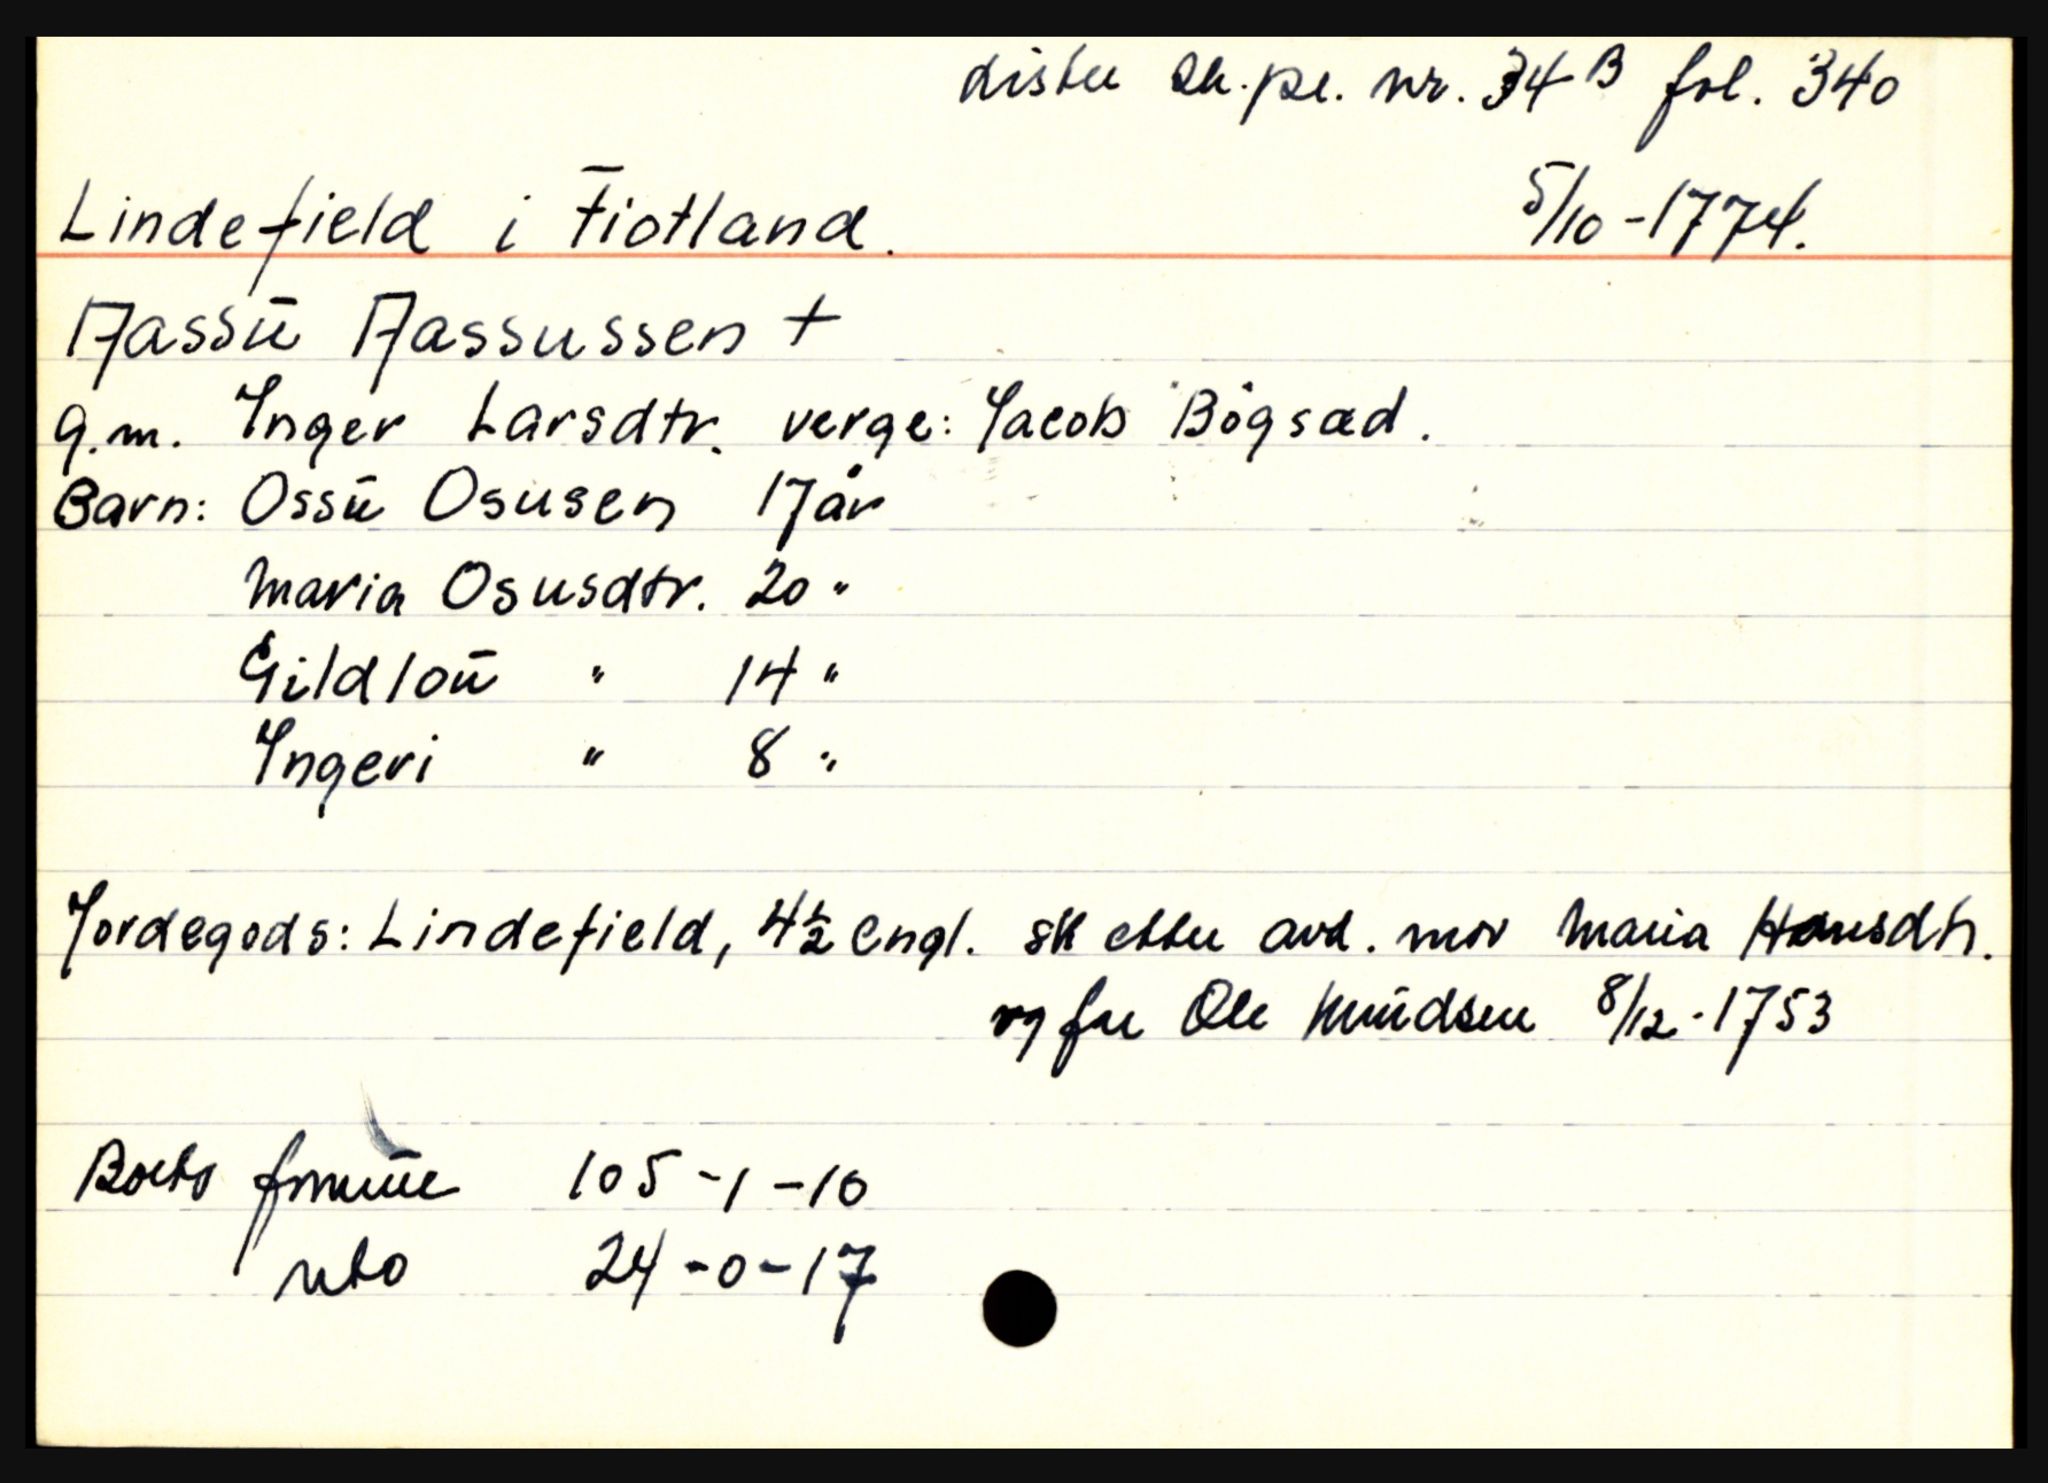 Lister sk.pr. nr. 34 B fol. 340
Lindefield i Fiotland. 5/10-1774.
Aassū Aassussen +
g.m. Inger Larsdtr. verge: Jacob Bógsæd.
Barn: Ossū Osusen 17 år
Maria Osusdtr. 20 "
Gildloū " 14 "
Ingeri " 8 "
Jordegods: Lindefield, 4½ engl. sk etter avd. mor Maria Hansdtr.
og far Ole Knūdsen 8/12-1753
Boets formūe 105-1-10
nto 24-0-17